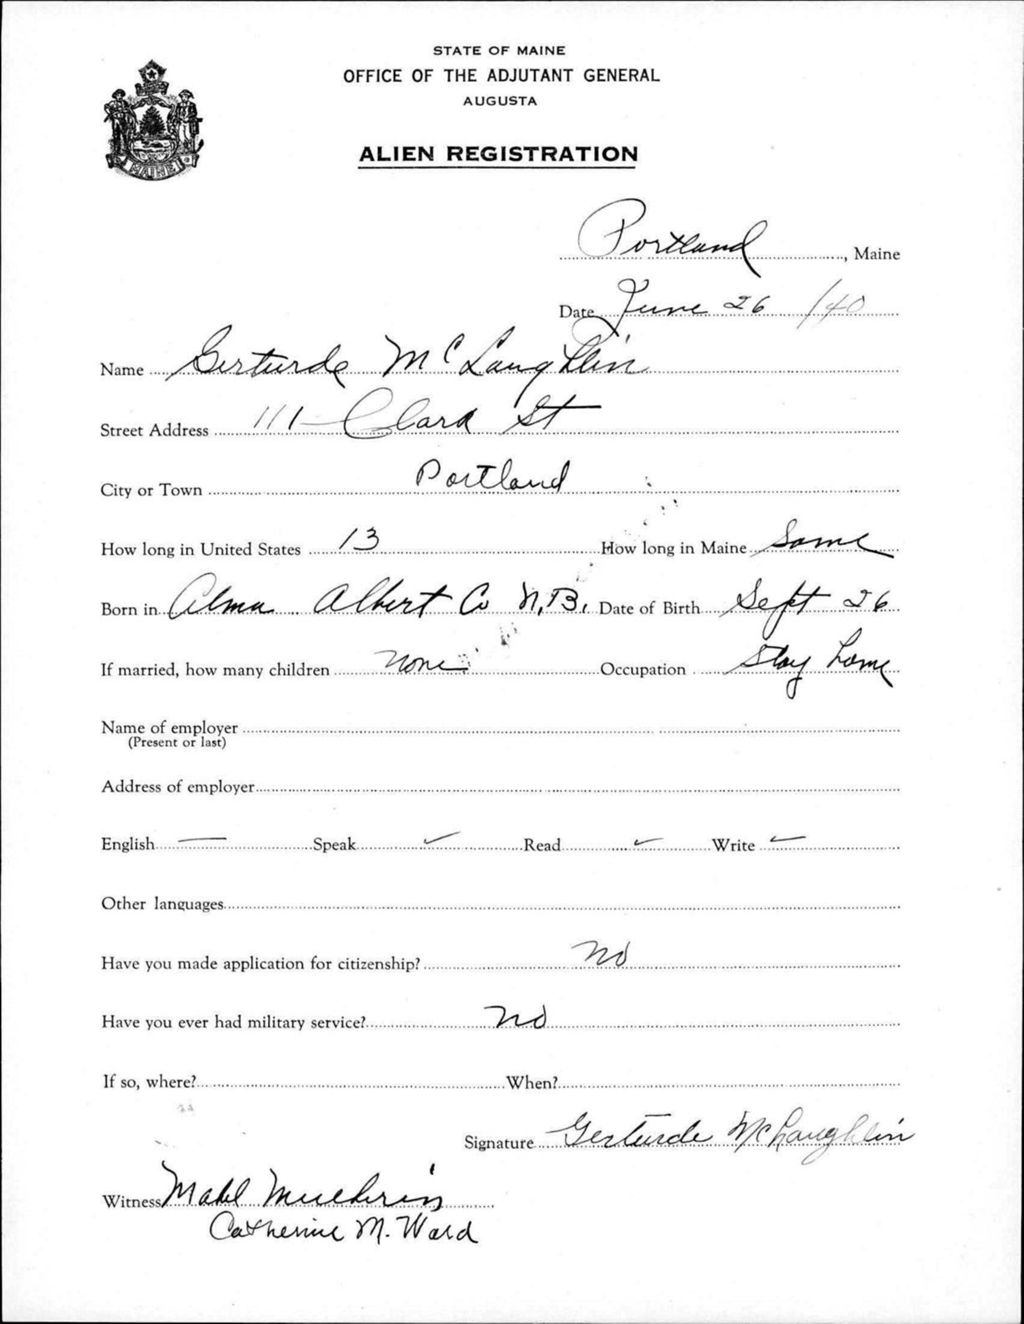 STATE OF MAINE
OFFICE OF THE ADJUTANT GENERAL
AUGUSTA
MAINE
ALIEN REGISTRATION
Portland, Maine
Date June 26 /40
Name Gerturde McLaughlin
Street Address 111 Clark St
City or Town Portland
How long in United States 13 How long in Maine Same
Born in Alma Albert Co N.B. Date of Birth Sept 26
If married, how many children None Occupation Stay home
Name of employer
(Present or last)
Address of employer
English — Speak ✓ Read ✓ Write ✓
Other languages
Have you made application for citizenship? No
Have you ever had military service? No
If so, where? When?
Signature Gerturde McLaughlin
Witness Mabel
Catherine M. Ward